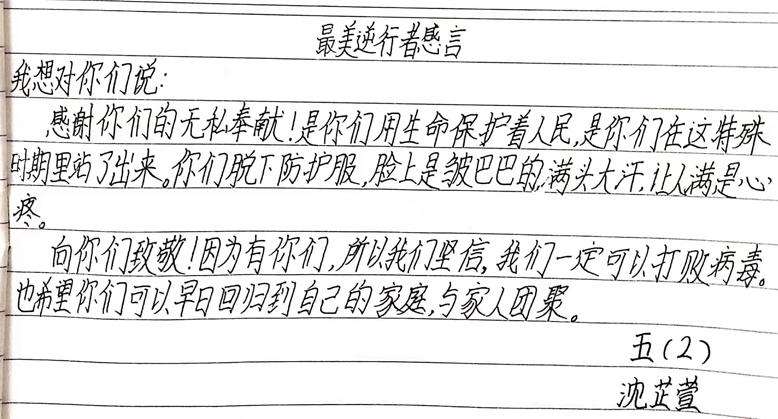 最美逆行者感言
我想对你们说:
感谢你们的无私奉献!是你们用生命保护着人民,是你们在这特殊
时期里站了出来。你们脱下防护服,脸上是皱巴巴的,满头大汗,让人满是心
疼。
向你们致敬!因为有你们,所以我们坚信,我们一定可以打败病毒。
也希望你们可以早日回归到自己的家庭,与家人团聚。
五(2)
沈芷萱